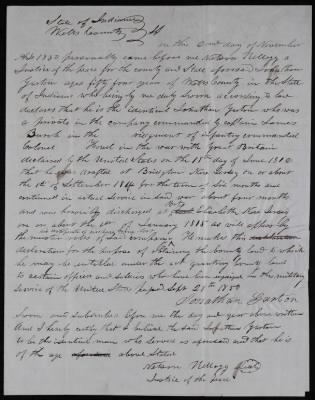 State of Indiana
Wells County } SS
on this 2nd day of November
AD 1850 personally came before me Nelson Kellogg a
Justice of the peace for the county and State aforesaid Jonathan
Garton aged fifty four years of Wells County in the State
of Indiana who being by me duly Sworn according to law
declares that he is the identical Jonathan Garton who was
a private in the company commanded by captain James
Burch in the regiment of infantry commanded
Colonel in the war with Great Britain
declared by the United States on the 18th day of June 1812
that he was drafted at Bridgeton New Jersey on or about
the of September 1814 for the term of Six months and
continued in actual Service in Said war about four months
and was honorably discharged at Elizabeth New Jersey
on or about the of January 1815 as will appear by
the muster rolls of said company He makes this
declaration for the purpose of obtaining the bounty land to which
he may be entitled under the act granting bounty land
to certain officers and soldiers who have been engaged in the military
Service of the United States passed Sept 28th 1850
Jonathan Garton
Sworn and Subscribed before me the day and year above written
And I hereby certify that I believe the said Jonathan Garton
to be the identical man who Served as aforesaid and that he is
of the age above Stated
Nelson Kellogg Seal
Justice of the peace